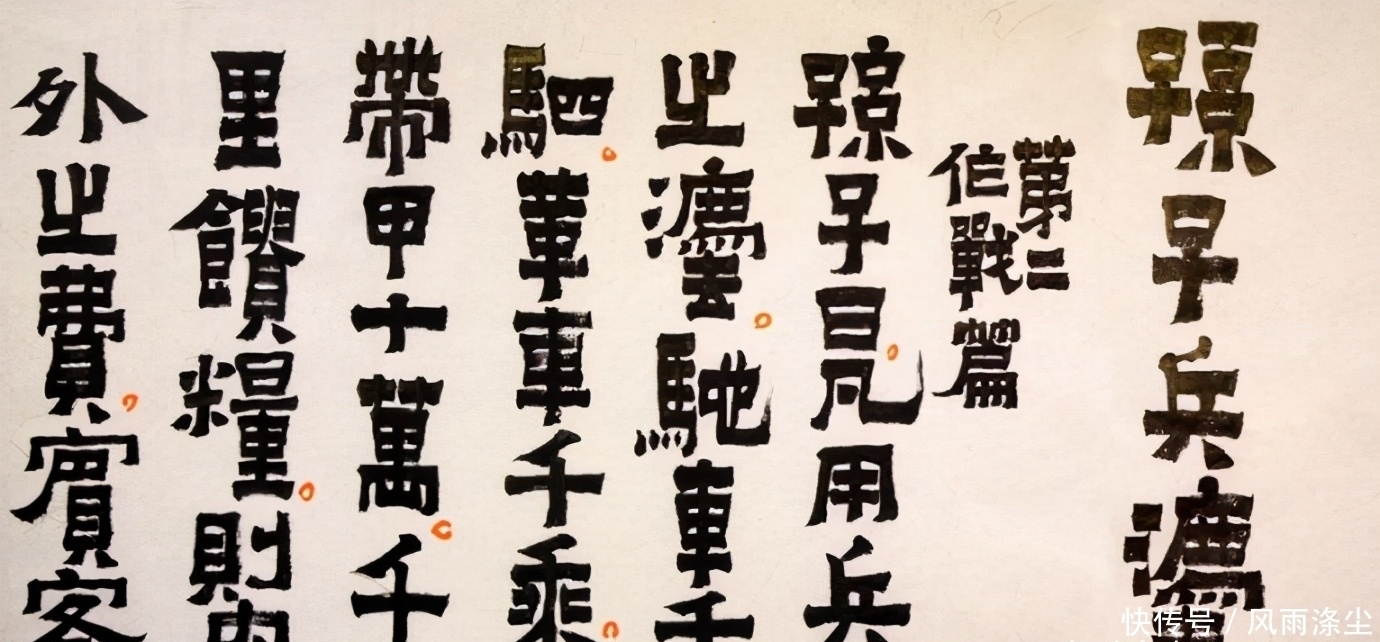 孫子兵灋
第二
作戰篇
孫子曰。凡用兵
之灋。馳車千
駟。革車千乘。
帶甲十萬。千
里饋糧。則內
外之費。賓客
快传号 / 风雨涤尘